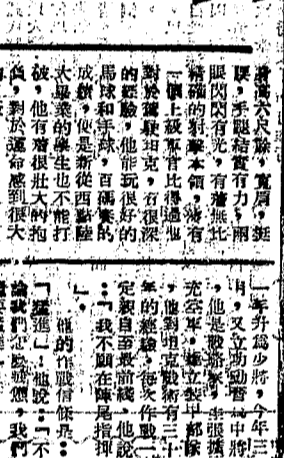 身高六尺餘，寬肩，挺
腰，手腿結實有力，兩
眼閃閃有光，有着無比
精確的射擊本領，沒有
一個上級軍官比得過他
對於駕駛坦克，有很深
的經驗，他能玩很好的
馬球和手球，百碼賽的
成績，便是新從西點陸
大畢業的學生也不能打
破，他有着很壯大的抱
負，對於運命感到很大
一年升為少將，今年三
月，又立功勳晉為中將
，他是戰略家，主張擴
充空軍，建立裝甲部隊
，他對坦克戰術有三十
年的經驗，每次作戰一
定親自至最前綫，他說
：「我不願在陣尾指揮
」。
他的作戰信條是：
「猛進」！他說：「不
論我們怎麼，我們